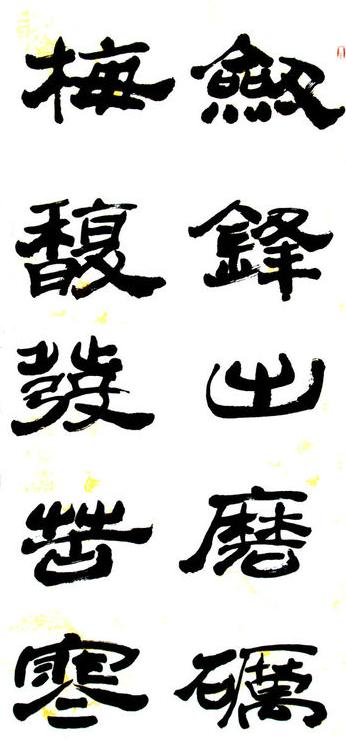 劔鋒出磨礪
梅馥發苦寒